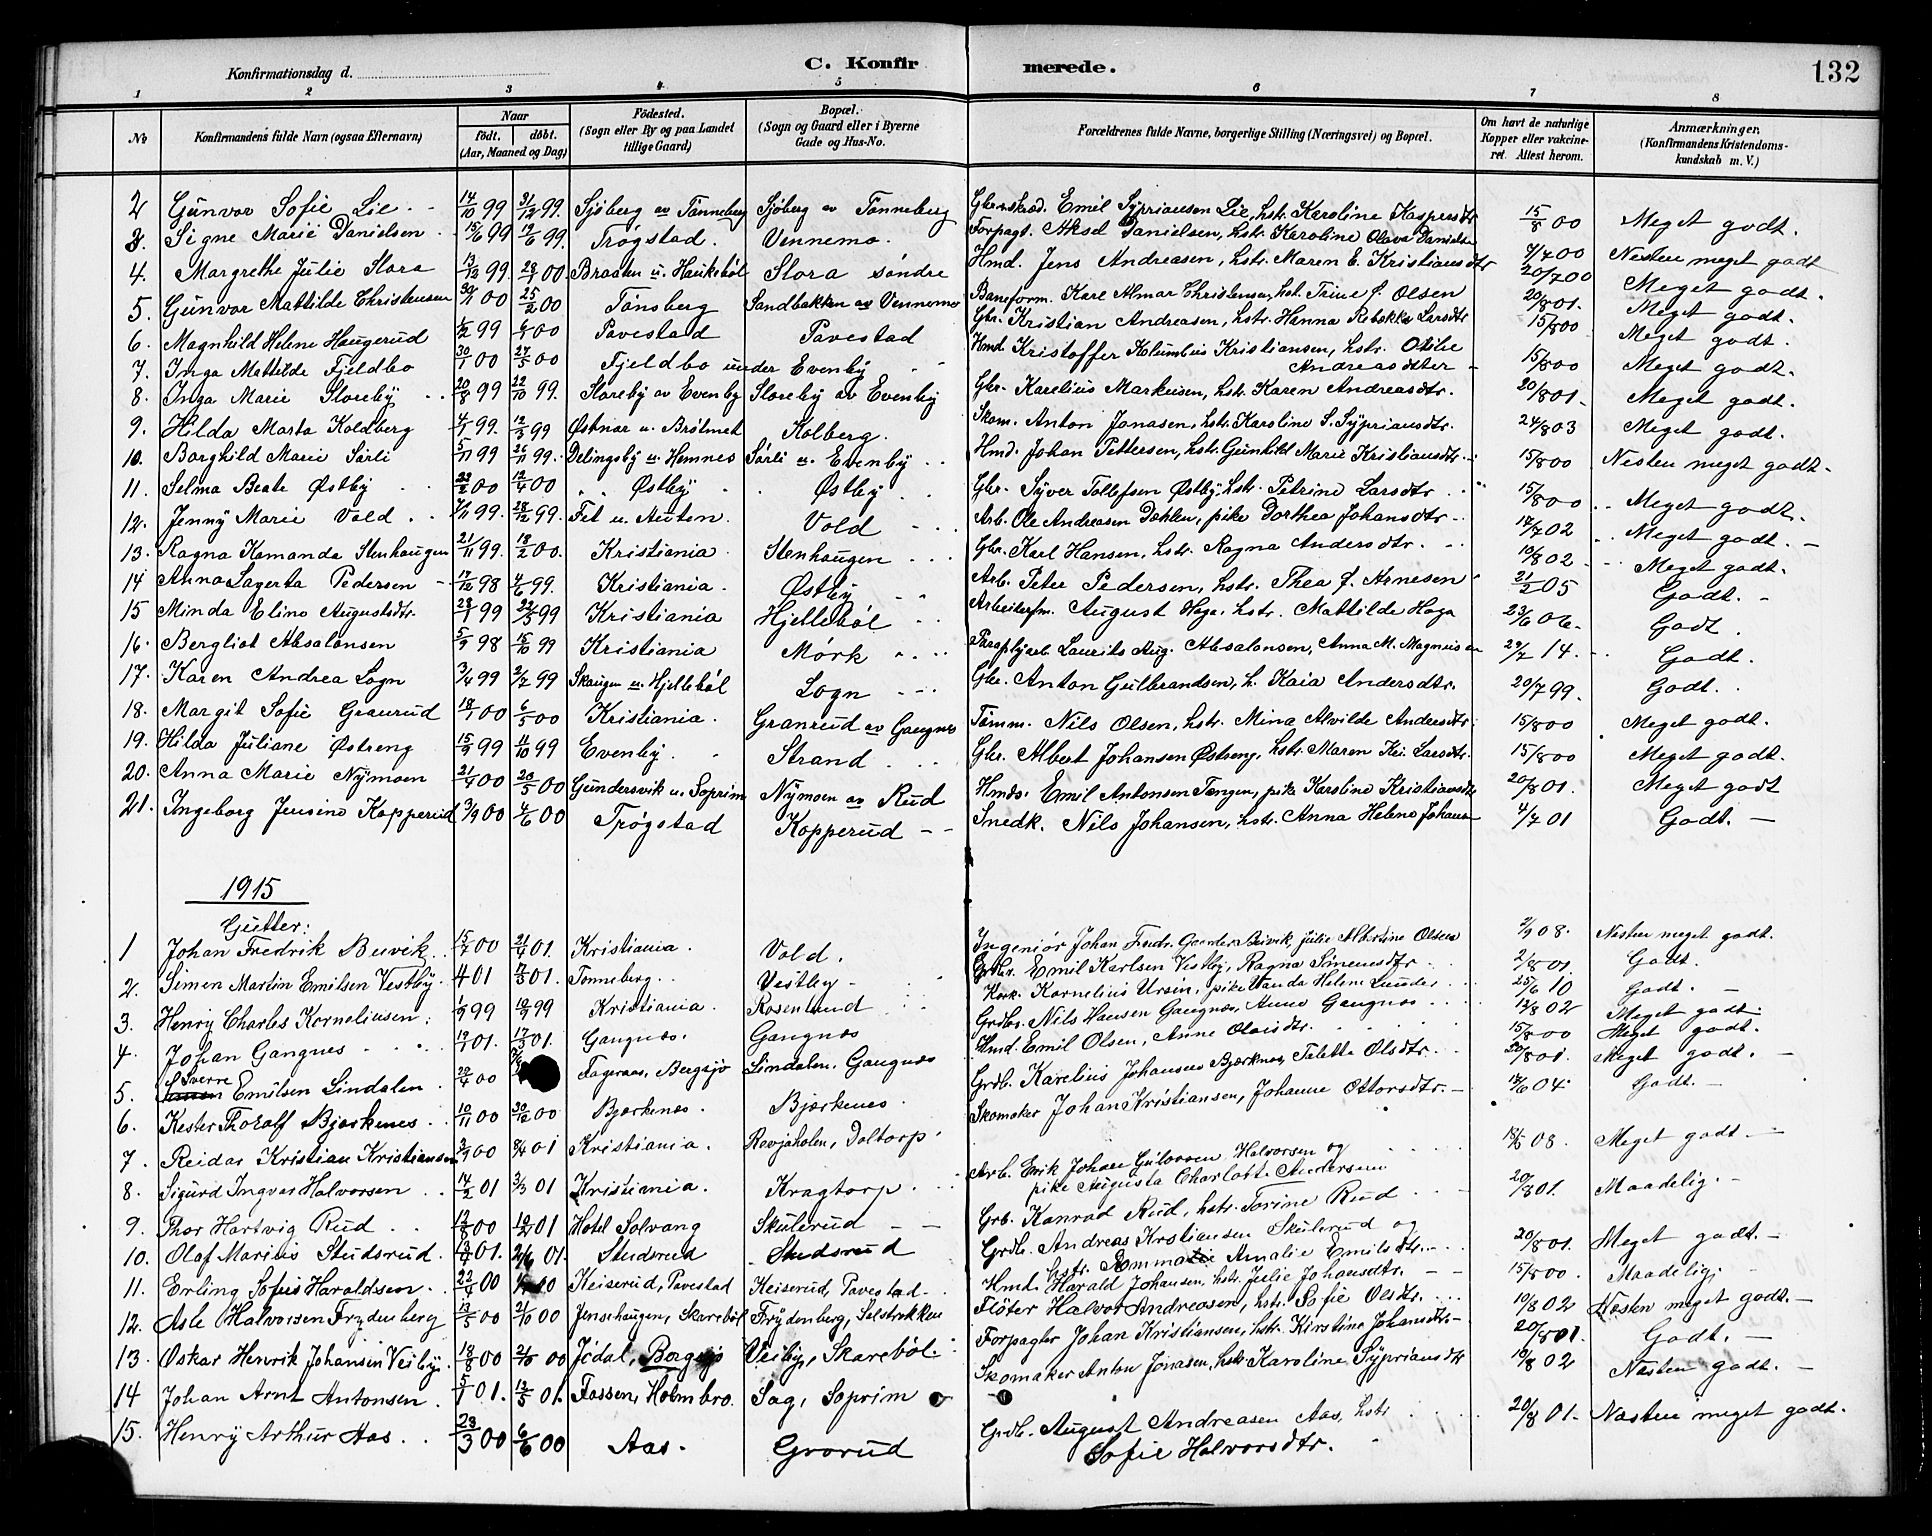 Konfirmationsdag d.
C. Konfirmerede.
132
1 2 3 4 5 6 7 8
No
Konfirmandens fulde Navn (ogsaa Efternavn)
Naar
födt. döbt.
(Aar, Maaned og Dag)
Födested.
(Sogn eller By og paa Landet
tillige Gaard)
Bopæl.
(Sogn og Gaard eller i Byerne
Gade og Hus-No.
Forældrenes fulde Navne, borgerlige Stilling (Næringsvei) og Bopæl.
Om havt de naturlige
Kopper eller vakcine-
ret. Attest herom.
Anmærkninger.
(Konfirmandens Kristendoms-
kundskab m. V.)
2 Gunvor Sofie Lie 14/10 99 31/12 99. Sjöberg av Tönneberg Sjöberg av Tönneberg Emil Sypriansen Lie, hstr. Karoline Kaspersdtr 15/8 00 Meget godt.
3. Signe Marie Danielsen 15/6 99 19/6 99. Trøgstad. Vennemo. Forpagt. Aksel Danielsen, hstr. Karoline Olava Danielse 7/7 00 Nesten meget godt
4. Margrethe Julie Slora 13/12 99. 28/1 00 Braaten u. Haukebøl Slora søndre Hmd. Jens Andreasen, hstr. Maren E. Kristiansdtr 20/7 00 Meget godt.
5. Gunvor Mathilde Christensen 30/1 00 25/2 00 Tønsberg Sandbakken av Vennemo Baneform. Karl Almar Christensen, hst. Trine f. Olsen 20/8 01. Meget godt.
6. Magnhild Helene Haugerud 1/12 99 6/1 00 Pavestad Pavestad Gbr. Kristian Andreasen, hstr. Hanna Rebekka Larsdtr 15/8 00 Meget godt.
7. Inga Mathilde Fjeldbo 30/1 00 24/5 00 Fjeldbo under Evenby Hmd. Kristoffer Kolumbus Kristiansen, hstr. Otilie Andreasdtter 15/8 00 Meget godt.
8. Inga Marie Sloreby 20/8 99 22/10 99. Sloreby av Evenby Sloreby av Evenby Gbr. Karelius Markusen, hstr. Karen Andreasdtr. 20/8 01. Meget godt.
9. Hilda Marta Koldberg 4/1 99. 12/3 99 Østnor u. Brötmet Kolberg. Skom. Anton Jonasen, hstr. Karoline S. Sypriansdtr. 24/8 03 Meget godt.
10. Borghild Marie Sørli 5/11 99 26/11 99. Delingsby u. Hemnes Sørli u. Evenby Hmd. Johan Pettersen, hstr. Gunhild Marie Kristiansdtr. 15/8 00 Nesten meget godt.
11. Selma Beate Østby 22/2 00 12/4 00 Østby Østby Gbr. Syver Tollefsen Østby, hstr. Petrine Larsdtr 15/8 00 Meget godt.
12. Jenny Marie Vold 7/11 99. 28/12 99. Fet u. Vold Arb. Ole Andreasen Dahlen, pike Dorthea Johansdtr 14/7 02 Meget godt.
13. Ragna Kamanda Stenhaugen 21/11 99. 18/2 00. Kristiania Stenhaugen Gbr. Karl Hansen, hstr. Ragna Andersdtr. 10/8 02 Meget godt.
14 Anna Lagerta Pedersen 17/12 98 4/6 99. Kristiania. Østby Arb. Peter Pedersen, hstr. Thea f. Arnesen 21/2 05 Godt.
15 Minda Eline Augustsdtr. 28/1 99 22/5 99 Kristiania Hjellebøl Arbeiderfm. August Haga, hstr. Mathilde Haga 23/6 06. Godt.
16. Bergliot Absalonsen 5/9 98 15/10 99 Kristiania Mørk Laurits Aug. Absalonsen, Anna M. Magnusen 29/7 14. Godt.
17. Karen Andrea Logn 3/4 99 2/7 99 Skaugen u. Hjellebøl Logn Gbr. Anton Gulbrandsen, h. Kaia Andersdtr. 20/7 99 Godt.
18. Margit Sofie Granrud 18/1 00 6/5 00 Kristiania. Granrud av Gangnes Tømm. Nils Olsen, hstr. Mina Alvilde Andersdtr. 15/8 00 Meget godt.
19. Hilda Juliane Østreng 15/9 99 11/10 99 Evenby. Strand Gbr. Albert Johansen Østreng, hstr. Maren Kr. Larsdtr. 15/8 00 Meget godt.
20. Anna Marie Nymoen 21/4 00 20/5 00 Gundersvik u. Soprim Nymoen av Rud Hmds. Emil Antonsen Tangen, pike Karoline Kristiansdtr 20/8 01. Meget godt
21. Ingeborg Jensine Kopperud 3/9 00 4/6 00 Trøgstad Kopperud Snedk. Nils Johansen, hstr. Anna Helene Johanse 4/7 01 Godt.
1915
Gutter:
1 Johan Fredrik Buvik 15/7 00 21/4 01. Kristiania. Vold. Ingeniør Johan Fredr. Buvik, Julie Albertine Olsen 2/9 08. Nesten meget godt.
2. Simen Martin Emilsen Vestby. 4 01 7/3 01. Tønneberg. Vestby Grbr. Emil Karlsen Vestby, Ragna Simensdtr 2/8 01. Godt.
3. Henry Charles Korneliusen 1/9 99 19/ 99 Kristiania Rosenlund Kork. Kornelius Ursin, pike Vanda Helene Lunder 25/6 10 Godt.
4. Johan Gangnes 19/1 01. 17/3 01. Gangnes. Gangnes Grdbr. Nils Hansen Gangnes, Anne Gangnes 12/8 02 Meget godt.
5. Sverre Emilsen Lindalen 29/4 00 Fageraas, Bergsjø Lindalen, Gangnæs Hmd. Emil Olsen, Anne Olaisdtr. 15/8 00 Meget godt.
6. Kester Thoralf Bjerkenes 10/11 00 30/12 00 Bjærkenæs. Bjærkenes Grdb. Karelius Johansen Bjærknes, Talette Olsdtr. 20/8 01. Meget godt.
7. Reidar Kristian Kristiansen 00 8/4 01 Kristiania. Revjaholen, Doltorp Skomaker Johan Kristiansen, Johanne Ottorsdtr. 12/6 04 Godt.
8. Sigurd Ingvar Halvorsen 14/2 01 3/3 01 Kristiania. Kragtorp Arb. Erik Johan Halvorsen og pike Augusta Charlott. Andersen 13/5 08. Meget godt.
9. Thor Hartvig Rud 13/8 00 10/2 01 Hotel Solvang Skulerud Grb. Konrad Rud, hstr. Torine Rud 20/8 01. Maadelig.
10. Olaf Marius Studsrud 13/4 01. 2/6 01. Studsrud Studsrud Grdb. Andreas Kristiansen Skulerud og hstr. Amalie Emilsdtr. 20/8 01. Meget godt.
11. Erling Sofus Haraldsen 22/4 00 Keiserud, Pavestad Keiserud, Pavestad Hmd. Harald Johansen, hstr. Julie Johansdtr. 15/8 00. Maadelig.
12. Asle Halvorsen Frydenberg 13/5 00 21/10 00 Jensehaugen, Skarebøl Frydenberg, Selstrækken Fløter Halvor Andreasen, hstr. Sofie Olsdtr. 10/8 02 Næsten meget godt.
13. Oskar Henrik Johansen Veiby 18/8 00 21/10 00 Jödal, Bergsjø Veiby, Skarebøl Forpagter Johan Kristiansen, hstr. Kirstine Johansdtr 20/8 01. Godt.
14 Johan Arnt Antonsen 5/1 01. 12/5 01. Fossen, Holmbro. Sag, Soprim Skomaker Anton Jonasen, hstr. Karoline Sypriansdtr 10/8 02 Næsten godt.
15. Henry Arthur Aas 23/3 00 6/6 00 Aas. Grorud Grdb. August Andreasen Aas, hstr. Sofie Halvorsdtr. 20/8 01. Næsten meget godt.